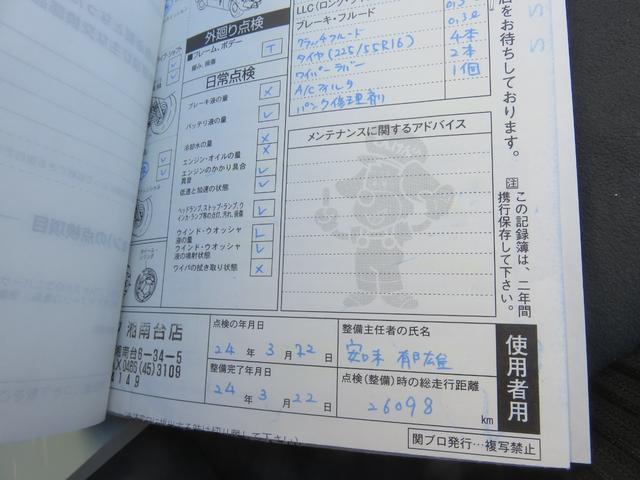 外廻り点検
■フレーム、ボデー
緩み、損傷
T
日常点検
ブレーキ液の量 ×
バッテリ液の量 レ
冷却水の量 ×
エンジン・オイルの量 ×
エンジンのかかり具合 異音 レ
低速と加速の状態 レ
ヘッドランプ、ストップ・ランプ、ウインカ・ランプ等の点灯、汚れ、損傷 レ
ウインド・ウオッシャ液の量 レ
ウインド・ウオッシャ液の噴射状態 レ
ワイパの拭き取り状態 ×
ブレーキ・フルード 0.3ℓ
クラッチフルード
タイヤ(225/55R16) 4本
ワイパーラバー 2本
A/Cフィルタ 1個
パンク修理剤
メンテナンスに関するアドバイス
をお待ちしております。
注 この記録簿は、二年間
携行保存して下さい。
湘南台店
湘南台6-34-5
0466(45)3109
149
点検の年月日
24年3月22日
整備完了年月日
24年3月22日
整備主任者の氏名
点検(整備)時の総走行距離
26098 km
使用者用
関ブロ発行…複写禁止